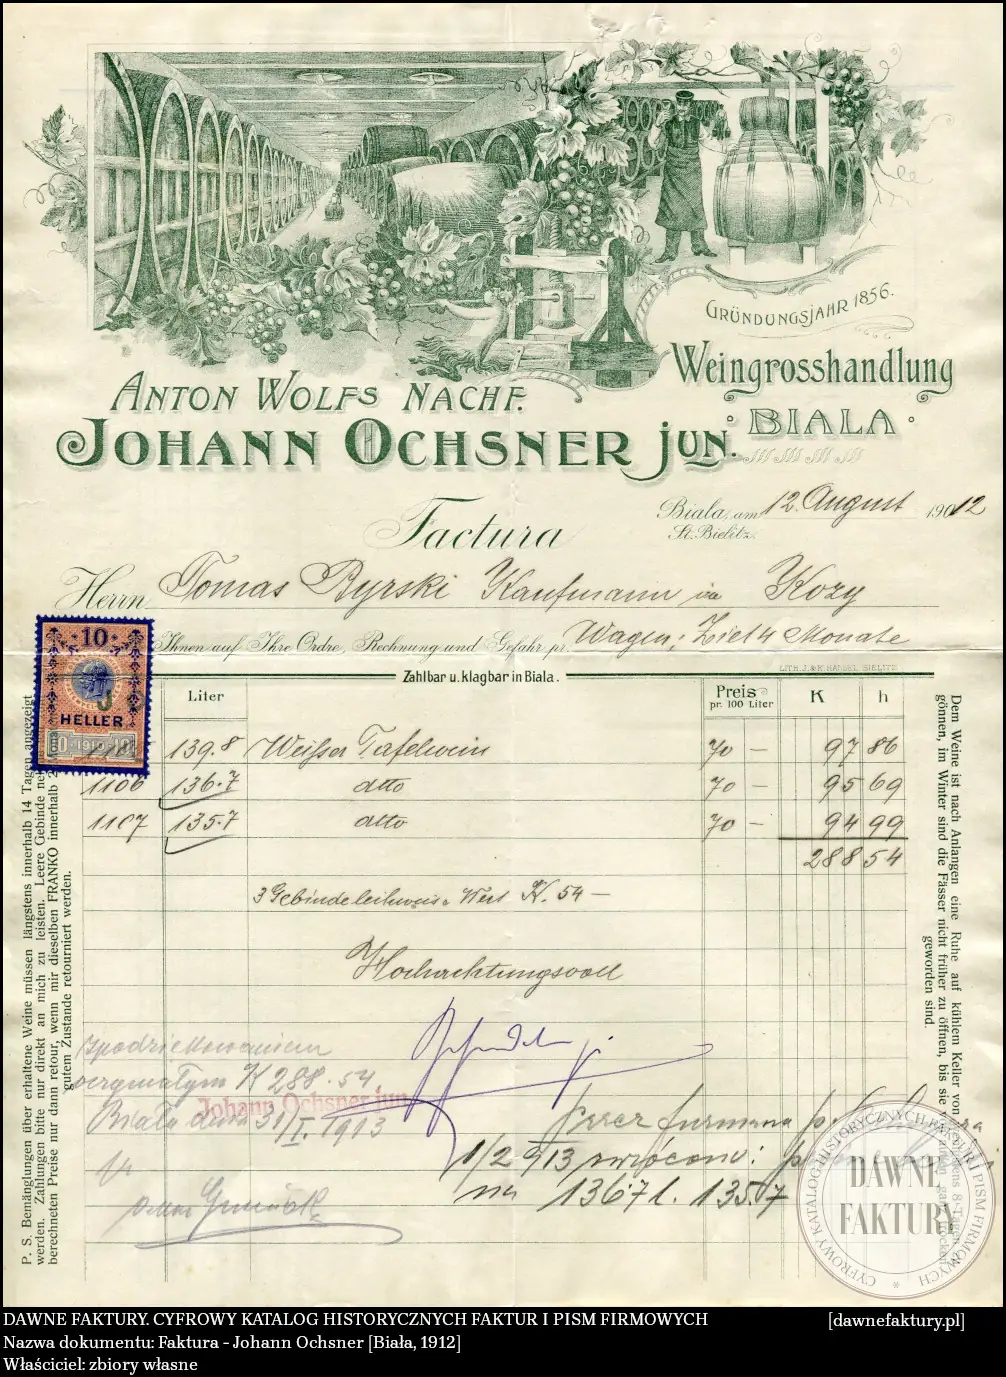 GRÜNDUNGSJAHR 1856.
Weingrosshandlung
BIALA
ANTON WOLFS NACHF.
JOHANN OCHSNER JUN.
Biala, am 12. August 1912
St. Bielitz.
Factura
Herrn Tomas Byrski Kaufmann in Kozy
Ihnen auf Ihre Ordre, Rechnung und Gefahr pr. Wagen; Ziel 4 Monate
LITH. J. & K. HANDEL BIELITZ
Zahlbar u. klagbar in Biala.
10
HELLER
10 · 1910 · 10
Liter
Preis
pr. 100 Liter
K
h
139.8 Weisser Tafelwein 70 — 97 86
1106 136.7 dtto 70 — 95 69
1107 135.7 dtto 70 — 94 99
288 54
3 Gebinde leihweise Wert K. 54 —
Hochachtungsvoll
Z podziękowaniem
otrzymałem K 288.54.
Johann Ochsner jun.
Biała dnia 31/I. 1913
przez furmana
1/2 913 zwrócono:
na 1367 l. 135.7
P. S. Bemänglungen über erhaltene Weine müssen längstens innerhalb 14 Tagen angezeigt
werden. Zahlungen bitte nur direkt an mich zu leisten. Leere Gebinde
berechneten Preise nur dann retour, wenn mir dieselben FRANKO innerhalb
gutem Zustande retourniert werden.
Dem Weine ist nach Anlangen eine Ruhe auf kühlem Keller von 8 Tagen
gönnen, im Winter sind die Fässer nicht früher zu öffnen, bis sie
geworden sind.
CYFROWY KATALOG HISTORYCZNYCH FAKTUR I PISM FIRMOWYCH
DAWNE
FAKTURY
DAWNE FAKTURY. CYFROWY KATALOG HISTORYCZNYCH FAKTUR I PISM FIRMOWYCH [dawnefaktury.pl]
Nazwa dokumentu: Faktura - Johann Ochsner [Biała, 1912]
Właściciel: zbiory własne